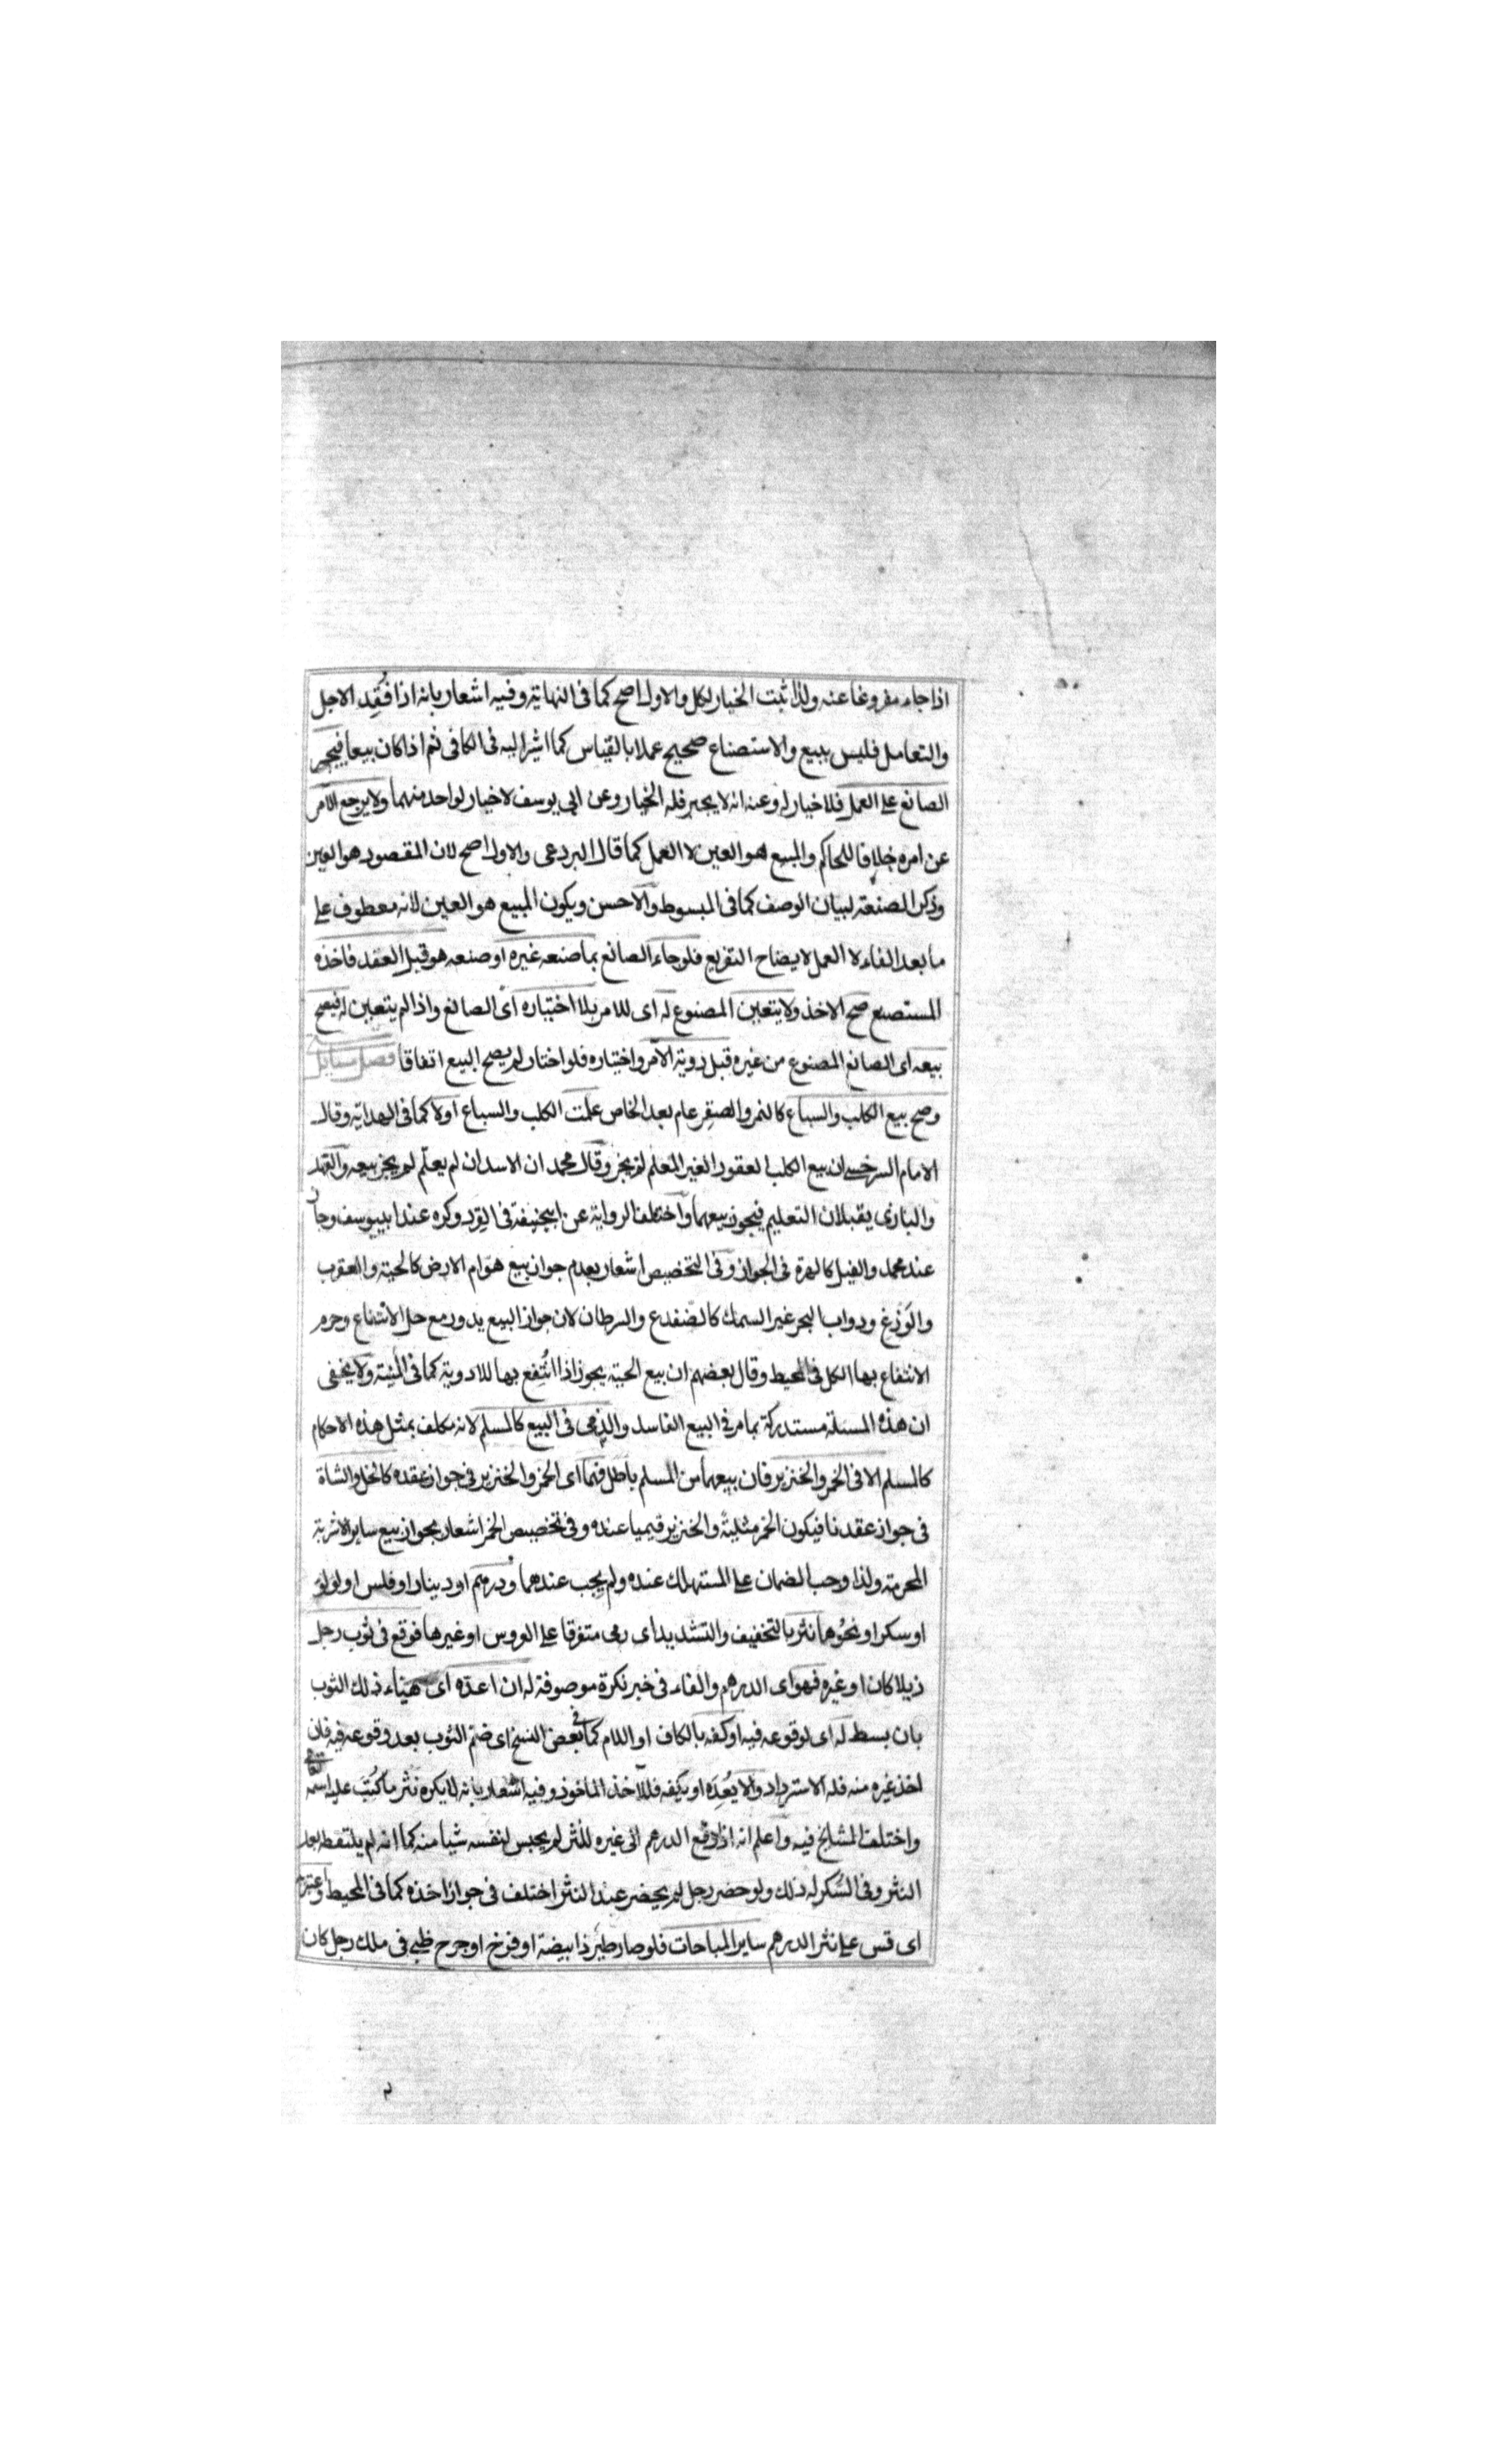 اذا جاء مفروغا عنه ولذا ثبت الخيار لكل والاول اصح كما فى النهاية وفيه اشعار بانه اذا فُقِد الاجل
والتعامل فليس ببيع والاستصناع صحيح عملا بالقياس كما اشير اليه فى الكافى ثم اذا كان بيعا فيجبر
الصانع على العمل فلا خيار له وعنه انه لا يجبر فله الخيار وعن ابى يوسف لا خيار لواحد منهما ولا يرجع الآمر
عن امره خلافا للحاكم والمبيع هو العين لا العمل كما قال البردعى والاول اصح لان المقصود هو العين
وذكر الصنعة لبيان الوصف كما فى المبسوط والاحسن ويكون المبيع هو العين لانه معطوف على
ما بعد الفاء لا العمل لايضاح التفريع فلو جاء الصانع بما صنعه غيره او صنعه هو قبل العقد فاخذه
المستصنع صح الاخذ ولا يتعين المصنوع له اى للامر بلا اختياره اى الصانع واذا لم يتعين له فيصح
بيعه اى الصانع المصنوع من غيره قبل روية الآمر واختياره فلو اختار لم يصح البيع اتفاقا فصل مسايل
وصح بيع الكلب والسباع كالنمر والصقر عام بعد الخاص علمت الكلب والسباع اولا كما فى الهداية وقال
الامام السرخسى ان بيع الكلب العقور الغير المعلم لم يجز وقال محمد ان الاسد ان لم يعلّم لم يجز بيعه والفهد
والبازى يقبلان التعليم فيجوز بيعهما واختلف الرواية عن ابيحنيفة فى القرد وكره عند ابييوسف وجاز
عند محمد والفيل كالهرة فى الجواز وفى التخصيص اشعار بعدم جواز بيع هوّام الارض كالحية والعقرب
والوَزَغ ودواب البحر غير السمك كالضفدع والسرطان لان جواز البيع يدور مع حل الانتفاع وحرم
الانتفاع بها الكل فى المحيط وقال بعضهم ان بيع الحية يجوز اذا انتُفع بها للادوية كما فى المنية ولا يخفى
ان هذه المسئلة مستدركة بما مر فى البيع الفاسد والذمى فى البيع كالمسلم لانه مكلف بمثل هذه الاحكام
كالمسلم الا فى الخمر والخنزير فان بيعهما من المسلم باطل فهما اى الخمر والخنزير فى جواز عقده كالخل والشاة
فى جواز عقدنا فيكون الخمر مثلية والخنزير قيميا عنده وفى تخصيص الخمر اشعار بجواز بيع ساير الاشربة
المحرمة ولذا وجب الضمان على المستهلك عنده ولم يجب عندهما ودرهم او دينار او فلس او لولو
او سكر او نحوُهما نثر بالتخفيف والتشديد اى رمى متفرقا على العروس او غيرها فوقع فى ثوب رجل
ذيلا كان او غيره فهو اى الدرهم والفاء فى خبر نكرة موصوفة له ان اعدّه اى هيّاء ذلك الثوب
بان بسط له اى لوقوعه فيه او كفه بالكاف او اللام كما فى بعض النسخ اى ضم الثوب بعد وقوعه فيه فان
اخذ غيره منه فله الاسترداد والا يُعِدّه او يكفه فللآخذ الماخوذ وفيه اشعار بانه لا يكره نثر ما كُتب عليه اسمه تعالى
واختلف المشايخ فيه واعلم انه اذا دفع الدرهم الى غيره للنثر لم يحبس لنفسه شيا منه كما انه لم يلتقطه بعد
النثر وفى السُكر له ذلك ولو حضر رجل لم يحضر عند النثر اختلف فى جواز اخذه كما فى المحيط واعتبر
اى قس على نثر الدرهم ساير المباحات فلو صار طير ذا بيضة او فرخ او جرح ظبى فى ملك رجل كان